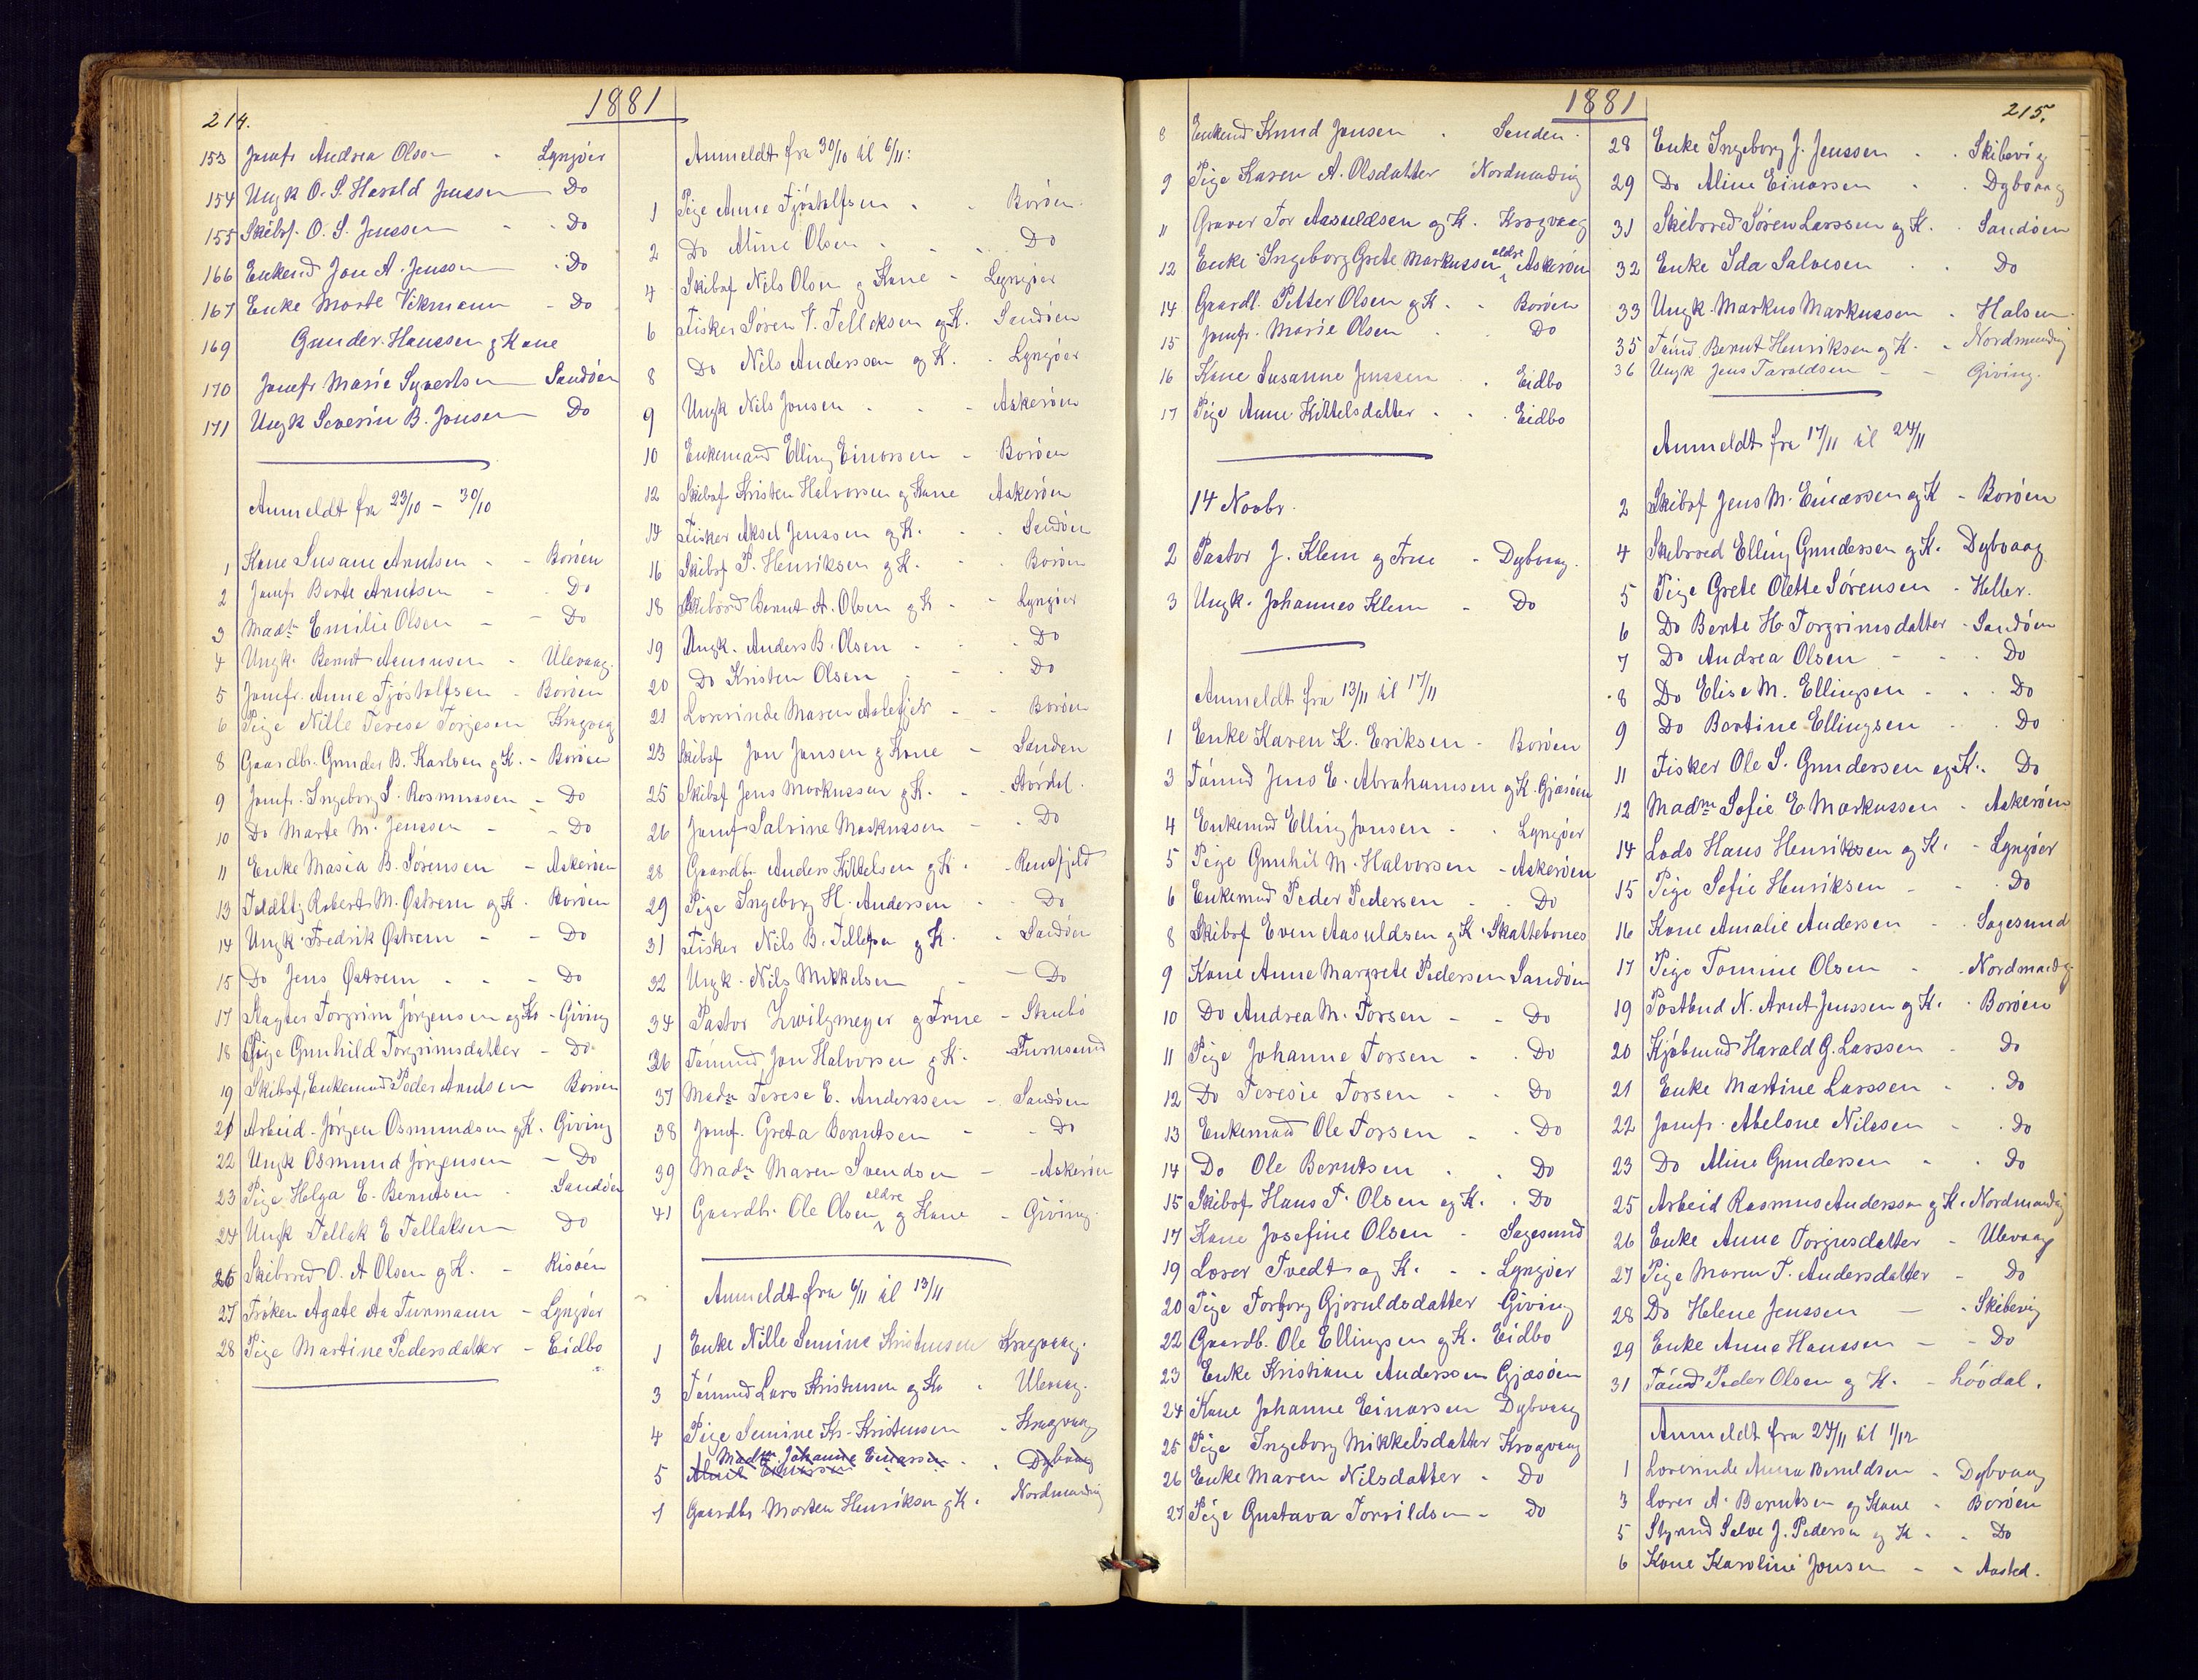 214.
1881
153 Jomfr Andrea Olsen - Lyngöer
154 Ungk O. S. Harald Jenssen Do
155 Skibsf. O. S. Jenssen - - Do
166 Enkemd Jon A. Jensson - Do
167 Enke Marte Vikmann - Do
169 Gunder Hanssen g Kone
170 Jomfr Marie Syvertsen Sandöen
171 Ungk Severin B. Jonsen Do
Anmeldt fra 23/10 - 30/10
1 Kone Susane Arntsen - - Boröen
2 Jomfr Berte Arntsen - Do
3 Madm Emilie Olsen - - Do
4 Ungk. Bernt Asmonsen - Ulevaag.
5 Jomfr. Anne Fjöstolfsen - Boröen
6 Pige Nille Terese Terjesen Kragvaag
8 Gaardbr. Gunder B. Karlsen g K. - Boröen
9 Jomfr. Ingeborg S. Rasmussen - Do
10 Do Marte M. Jenssen - - Do
11 Enke Maria B. Sörensen - Askeröen
13 Toldbtj Robert M. Østrem og K. Boröen
14 Ungk. Fredrik Østrem - - Do
15 Do Jens Østrem - - - Do
17 Torgrim Jörgensen og K - Giving
18 Pige Gunhild Torgrimsdatter - Do
19 Skibsf, Enkemnd Peder Arntsen Boröen
21 Arbeid. Jörgen Osmundsen g K. Giving
22 Ungk Osmund Jörgensen - Do
23 Pige Helga E. Berntsen . Sandöen
24 Ungk Tellak E Tellaksen Do
26 Skibsred O. A Olsen g K. - Risöen
27 Fröken Agate Aa Turmann - Lyngöer
28 Pige Martine Pedersdatter - Eidbo
Anmeldt fra 30/10 til 6/11:
1 Pige Anne Fjöstolfsen . - Boröen.
2 Do Aline Olsen . - - Do
4 Skibsf Nils Olsen g Kone - Lyngöer
6 Fisker Sören V. Telleksen og K. Sandöen
8 Do Nils Anderssen og K. . Lyngöer
9 Ungk Nils Jonsen . - - Askeröen
10 Enkemand Elling Einarsen - Boröen
12 Skibsf Kristen Halvorsen g Kone Askeröen
14 Fisker Aksel Jenssen og K. . . Sandöen
16 Skibsf P. Henriksen g K. - Boröen
18 Skibsred Bernt A. Olsen g K - - Lyngöer
19 Ungk. Anders B. Olsen - . Do
20 Do Kristen Olsen . - . Do
21 Loserinde Maren Aalefjær - - Boröen
23 Skibsf Jon Jonsen g Kone - Sanden
25 Skibsf Jens Markussen g K. - Stördal.
26 Jomf Salvine Markussen - . Do
28 Gaardbr Anders Kittelsen g K. - Rensfjeld
29 Pige Ingeborg H. Andersen - Do
31 Fisker Nils B. Tellefsen g K. . Sandöen
32 Ungk. Nils Mikkelsen - - Do
34 Pastor Zwilgmeyer g Frue - Staubö
36 Tömmd, Jon Halvorsen g K. - Furusund
37 Madm Terese E. Anderssen - Sandöen
38 Jomf. Greta Berntsen - - Do
39 Madm Maren Svendsen - - Askeröen
41 Gaardbr. Ole Olsen ældre g Kone - Giving.
Anmeldt fra 6/11 til 13/11
1 Enke Nille Semine Kristensen Kragvaag.
3 Tömmd Lars Kristensen og Ko . Ulevaag.
4 Pige Semine Kr. Kristensen . Kragvaag
5 Madm Johanne Einarssen Aline Einarssen - . Dybvaag
7 Gaardbr Morten Henriksen g K. Nordmanding
1881
215.
8 Enkemd Knud Jonsen . Sanden.
9 Pige Karen A. Olsdatter Nordmanding
11 Graver Tor Aasuldsen og K. Kragvaag
12 Enke Ingeborg Grete Markussen ældre Askeröen
14 Gaardb. Petter Olsen g K. . Boröen
15 Jomfr. Marie Olsen . Do
16 Kone Susanne Jenssen . Eidbo
17 Pige Anne Kittelsdatter . . . Eidbo
14 Novbr.
2 Pastor J. Klem g Frue - Dybvaag.
3 Ungk. Johannes Klem - Do
Anmeldt fra 13/11 til 17/11
1 Enke Karen K. Eriksen - Boröen
3 Tömmd Jens E. Abrahamsen g K. Gjæsöen
4 Enkemnd Elling Jonsen - . Lyngöer
5 Pige Gunhil M. Halvorsen - Askeröen
6 Enkemnd Peder Pedersen - . Do
8 Skibsf Even Aasuldsen g K. Skattebones
9 Kone Anne Margrete Pedersen Sandöen
10 Do Andrea M. Torsen - - Do
11 Pige Johanne Torsen - . Do
12 Do Teresie Torsen - - Do
13 Enkemnd Ole Torsen - . Do
14 Do Ole Berntsen . . Do
15 Skibsf Hans T. Olsen og K. . Do
17 Kone Josefine Olsen - Sagesund
19 Loser Tvedt og K. - - Lyngöer
20 Pige Torborg Gjeruldsdatter Giving
22 Gaardb. Ole Ellingsen g K. Eidbo
23 Enke Kristiane Anderssen Gjæsöen
24 Kone Johanne Einarsen Dybvaag
25 Pige Ingeborg Mikkelsdatter Kragvaag
26 Enke Maren Nilsdatter - Do
27 Pige Gustava Torvildsen - Do
28 Enke Ingeborg J. Jenssen . . Skibevig
29 Do Aline Einarssen . . Dybvaag
31 Skibsred Sören Larssen og K. . Sandöen
32 Enke Ida Salvesen . . Do
33 Ungk. Markus Markussen . Halsen.
35 Tömd Bernt Henriksen g K. - Nordmanding
36 Ungk Jens Taraldsen - - Giving.
Anmeldt fra 17/11 til 24/11
2 Skibsf Jens M. Einarssen og K - Boröen
4 Skibsred Elling Gundersen g K. Dybvaag
5 Pige Grete Olette Sörensen - Heller.
6 Do Berte H. Torgrimsdatter - Sandöen
7 Do Andrea Olsen - - . Do
8 Do Elise M. Ellingsen - . Do
9 Do Bertine Ellingsen . Do
11 Fisker Ole S. Gundersen og K.. Do
12 Madm Sofie E. Markussen - Askeröen
14 Lods Hans Henriksen og K. - Lyngöer
15 Pige Sofie Henriksen - - . Do
16 Kone Amalie Andersen - . Sagesund
17 Pige Tomine Olsen - . Nordmandg
19 Postbud N. Arnt Jenssen og K. . Boröen
20 Kjöbmnd Harald G. Larssen - Do
21 Enke Martine Larssen - . Do
22 Jomfr. Abelone Nilssen - . Do
23 Do Aline Gundersen - . Do
25 Arbeid Rasmus Anderssen g K. Nordmanding
26 Enke Anne Torjusdatter - Ulevaag
27 Pige Maren T. Andersdatter - Do
28 Do Helene Jenssen - . Skibevig
29 Enke Anne Hanssen - - Do
31 Tömd Peder Olsen g K. - Lövdal.
Anmeldt fra 24/11 til 1/12
1 Loserinde Anna Beruldsen - Dybvaag
3 Loser A. Berntsen og Kone - Boröen
5 Styrmd Salve J. Pedersen og K - . Do
6 Kone Karoline Jonsen - - Aasted.